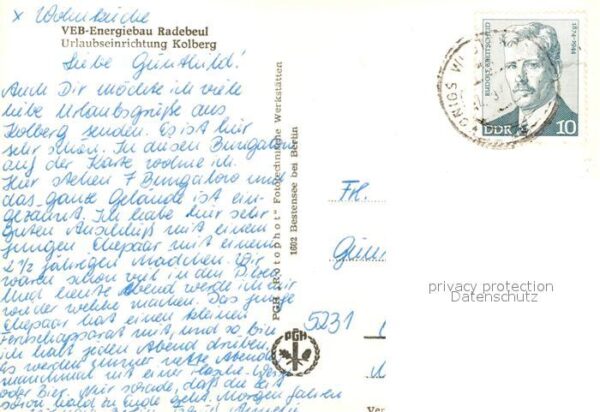 x Wohnküche
VEB-Energiebau Radebeul
Urlaubseinrichtung Kolberg
Liebe Gunthild!
Auch Dir möchte ich viele
liebe Urlaubsgrüße aus
Kolberg senden. Es ist hier
sehr schön. In diesen Bungalow
auf der Karte wohne ich.
Hier stehen 7 Bungalow und
das ganze Gelände ist ein-
gezäunt. Ich habe hier sehr
guten Anschluß mit einem
jungen Ehepaar mit einem
2 1/2 jährigen Mädchen. Wir
waren schon viel in den
und heute Abend werde ich mir
wieder welche machen. Das junge
Ehepaar hat einen kleinen
Fernsehapparat mit, und so bin
ich halt jeden Abend drüben,
es werden immer nette Abende
manchmal mit einer Flasche Wein
oder Bier. Nur schade, daß die Zeit
schon bald zu Ende geht. Morgen fahren
PGH „Rotophot" Fototechnische Werkstätten
1602 Bestensee bei Berlin
PGH
RUDOLF BREITSCHEID
1874-1944
DDR 10
Frl.
Gun
5231
privacy protection
Datenschutz
Ver